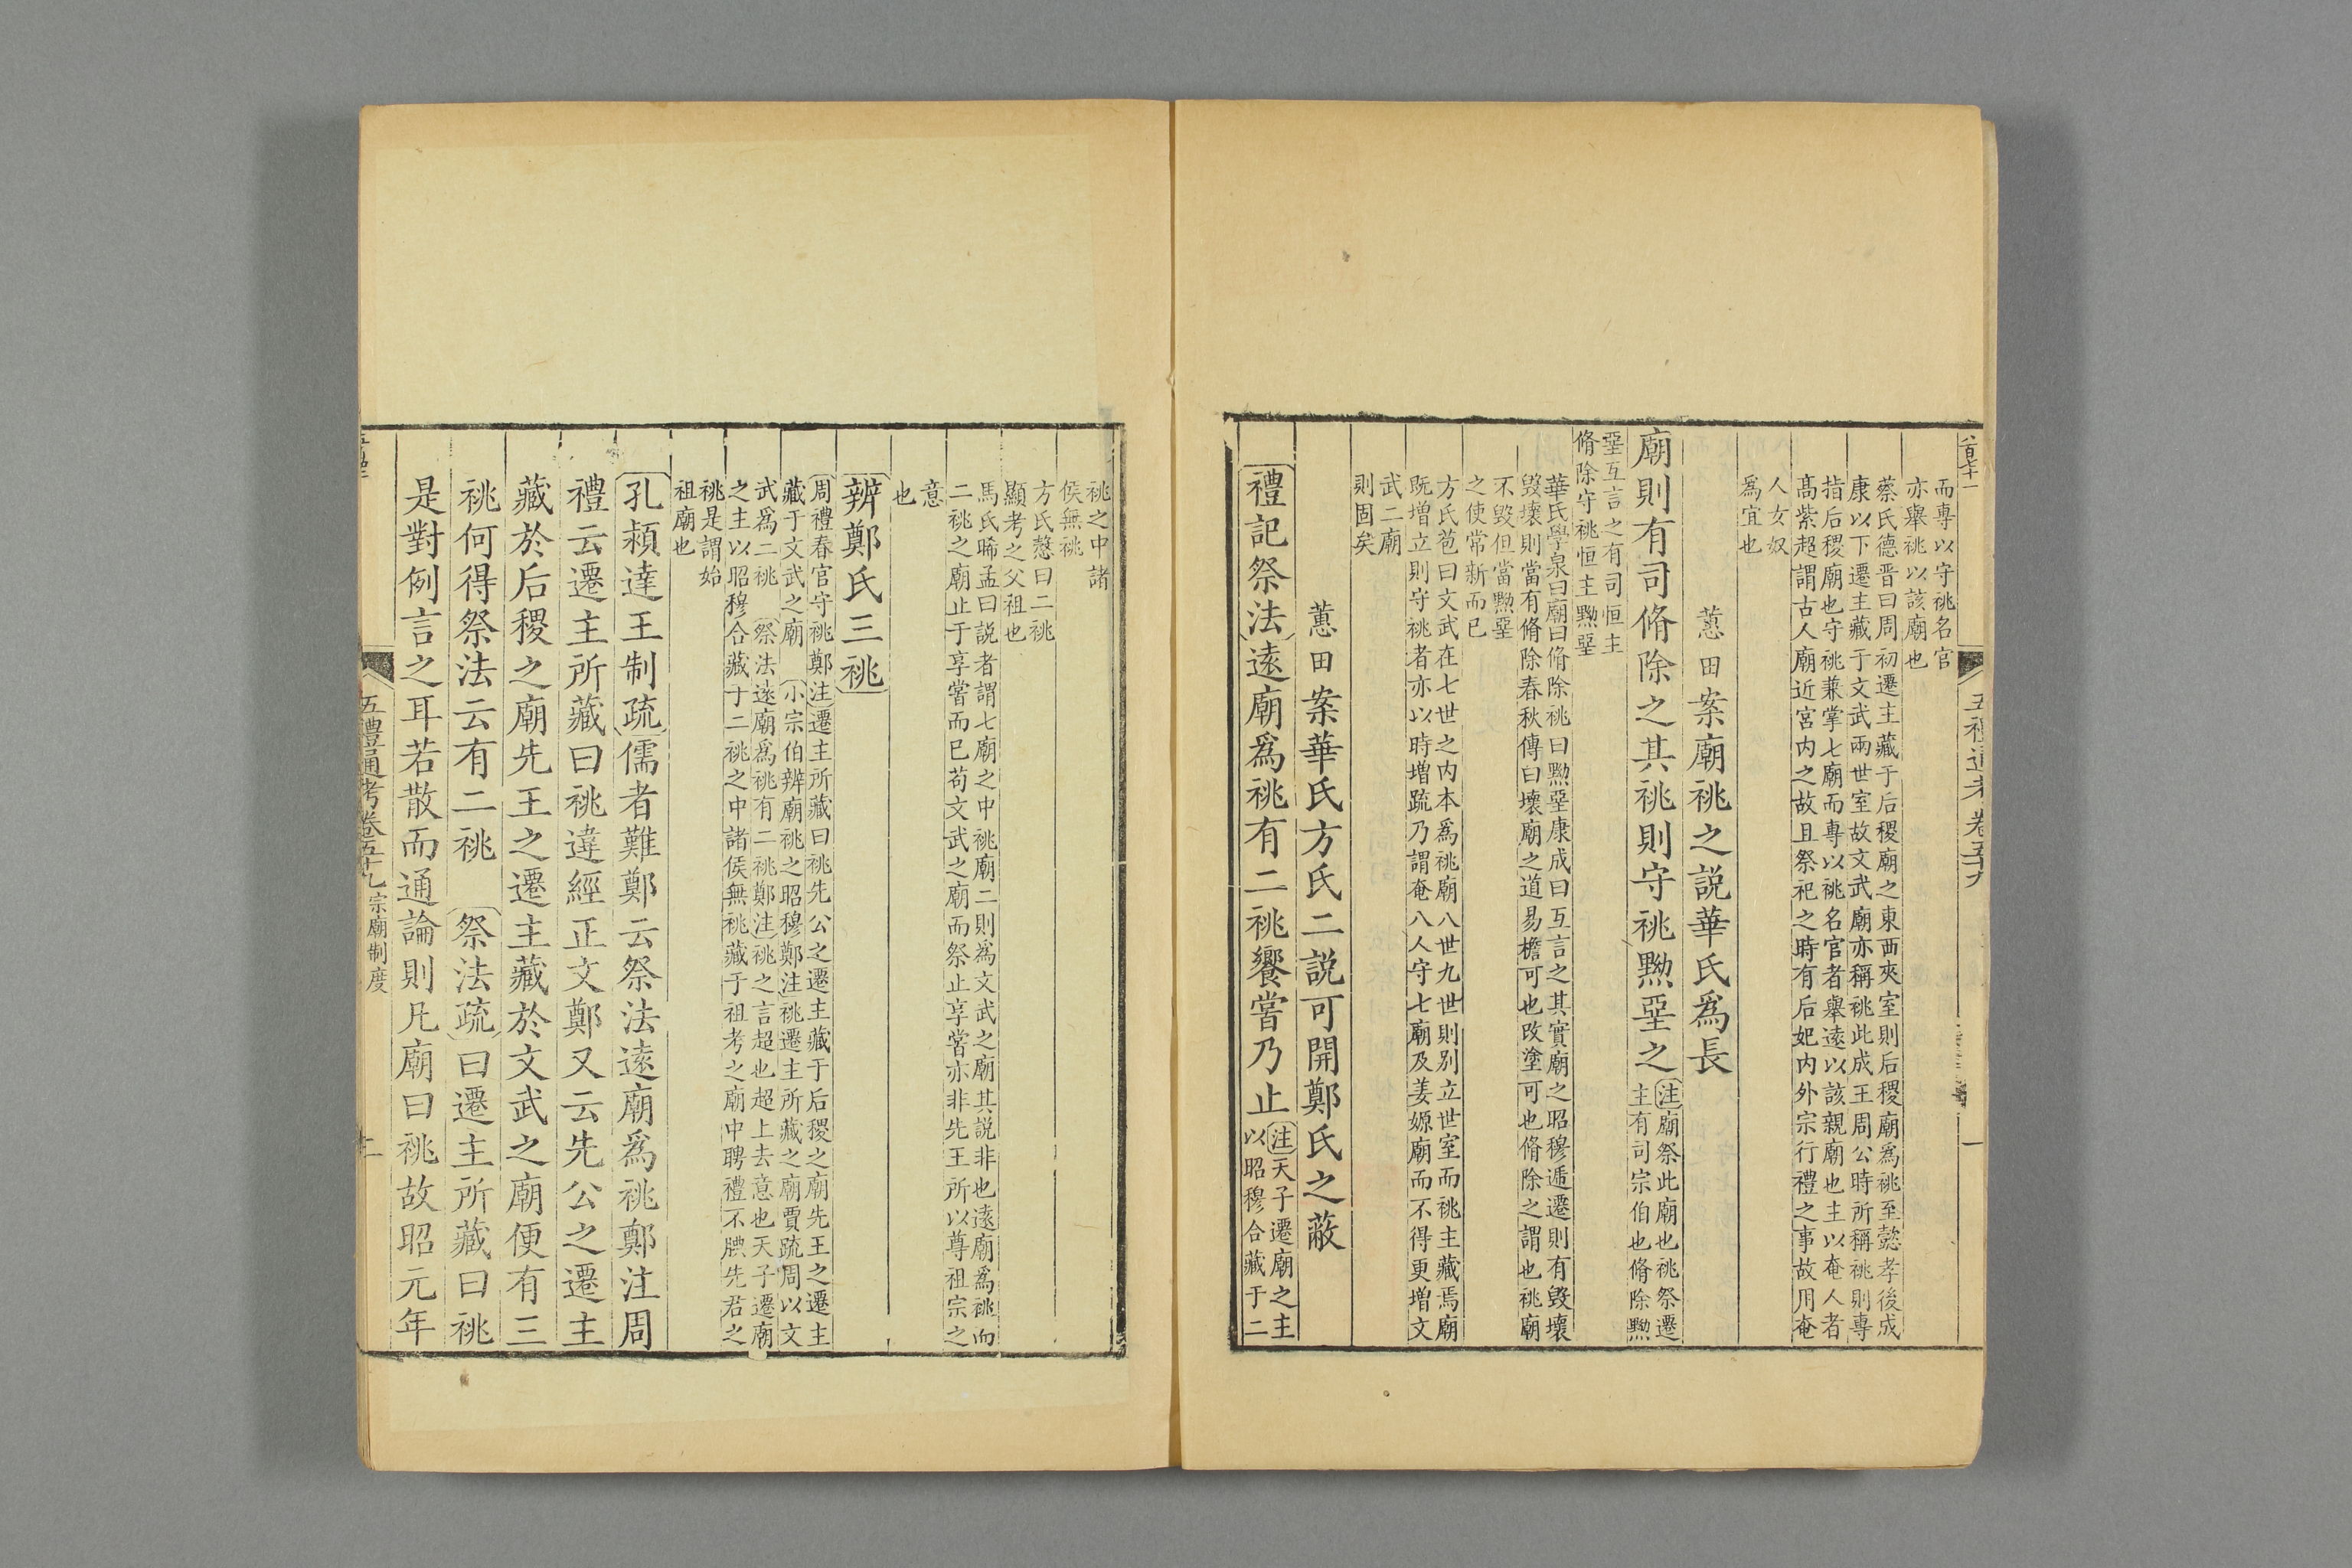 而專以守祧名官
亦舉祧以該廟也
蔡氏德晋曰周初遷主藏于后稷廟之東西夾室則后稷廟爲祧至懿孝後成
康以下遷主藏于文武兩世室故文武廟亦稱祧此成王周公時所稱祧則專
指后稷廟也守祧兼掌七廟而專以祧名官者舉逺以該親廟也主以奄人者
髙紫超謂古人廟近宮内之故且祭祀之時有后妃内外宗行禮之事故用奄
人女奴
爲宜也
蕙田案廟祧之説華氏爲長
廟則有司脩除之其祧則守祧黝堊之
注廟祭此廟也祧祭遷
主有司宗伯也脩除黝
堊互言之有司恒主
脩除守祧恒主黝堊
華氏學泉曰廟曰脩除祧曰黝堊康成曰互言之其實廟之昭穆遞遷則有毁壞
毁壞則當有脩除春秋傳曰壞廟之道易檐可也改塗可也脩除之謂也祧廟
不毁但當黝堊
之使常新而已
方氏苞曰文武在七世之内本爲祧廟八世九世則别立世室而祧主藏焉廟
既增立則守祧者亦以時增䟽乃謂奄八人守七廟及姜嫄廟而不得更增文
武二廟
則固矣
蕙田案華氏方氏二説可開鄭氏之蔽
禮記祭法逺廟爲祧有二祧饗嘗乃止
注天子遷廟之主
以昭穆合藏于二
祧之中諸
侯無祧
方氏慤曰二祧
顯考之父祖也
馬氏晞孟曰説者謂七廟之中祧廟二則爲文武之廟其説非也逺廟爲祧而
二祧之廟止于享嘗而已苟文武之廟而祭止享嘗亦非先王所以尊祖宗之
意
也
辨鄭氏三祧
周禮春官守祧鄭注遷主所藏曰祧先公之遷主藏于后稷之廟先王之遷主
藏于文武之廟 小宗伯辨廟祧之昭穆鄭注祧遷主所藏之廟賈䟽周以文
武爲二祧 祭法逺廟爲祧有二祧鄭注祧之言超也超上去意也天子遷廟
之主以昭穆合藏于二祧之中諸侯無祧藏于祖考之廟中聘禮不腆先君之
祧是謂始
祖廟也
孔穎達王制疏儒者難鄭云祭法逺廟爲祧鄭注周
禮云遷主所藏曰祧違經正文鄭又云先公之遷主
藏於后稷之廟先王之遷主藏於文武之廟便有三
祧何得祭法云有二祧 祭法疏曰遷主所藏曰祧
是對例言之耳若散而通論則凡廟曰祧故昭元年
五禮通考卷五十九宗廟制度